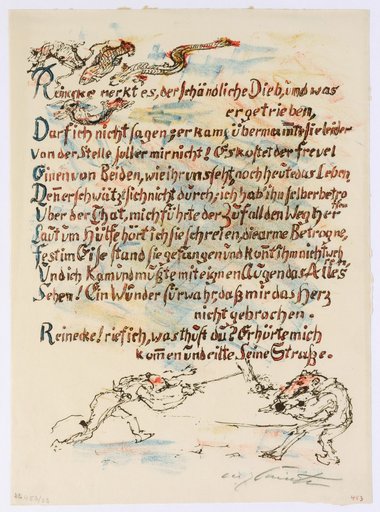 Reineke neckt es, der schändliche Dieb, und was
er getrieben,
Darf ich nicht sagen er kam, übermannte sie leider
Von der Stelle soll er mir nicht! Es kostet der frevel
Einen von Beiden, wie ihr uns seht, noch heute das Leben
Denn er schwätzt sich nicht durch; ich hab ihn selber betro
ffen
Über der That, mich führte der Zufall den Weg her
Laut um Hülfe hört ich sie schreien, die arme Betrogne,
fest im Eise stand sie gefangen und konnt ihm nicht
Und ich kam und mußte mit eignen Augen das Alles
Sehen! Ein Wunder fürwahr, daß mir das Herz
nicht gebrochen.
Reineke! rief ich, was thust du? Er hörte mich
kommen und eilte Seine Straße.
413